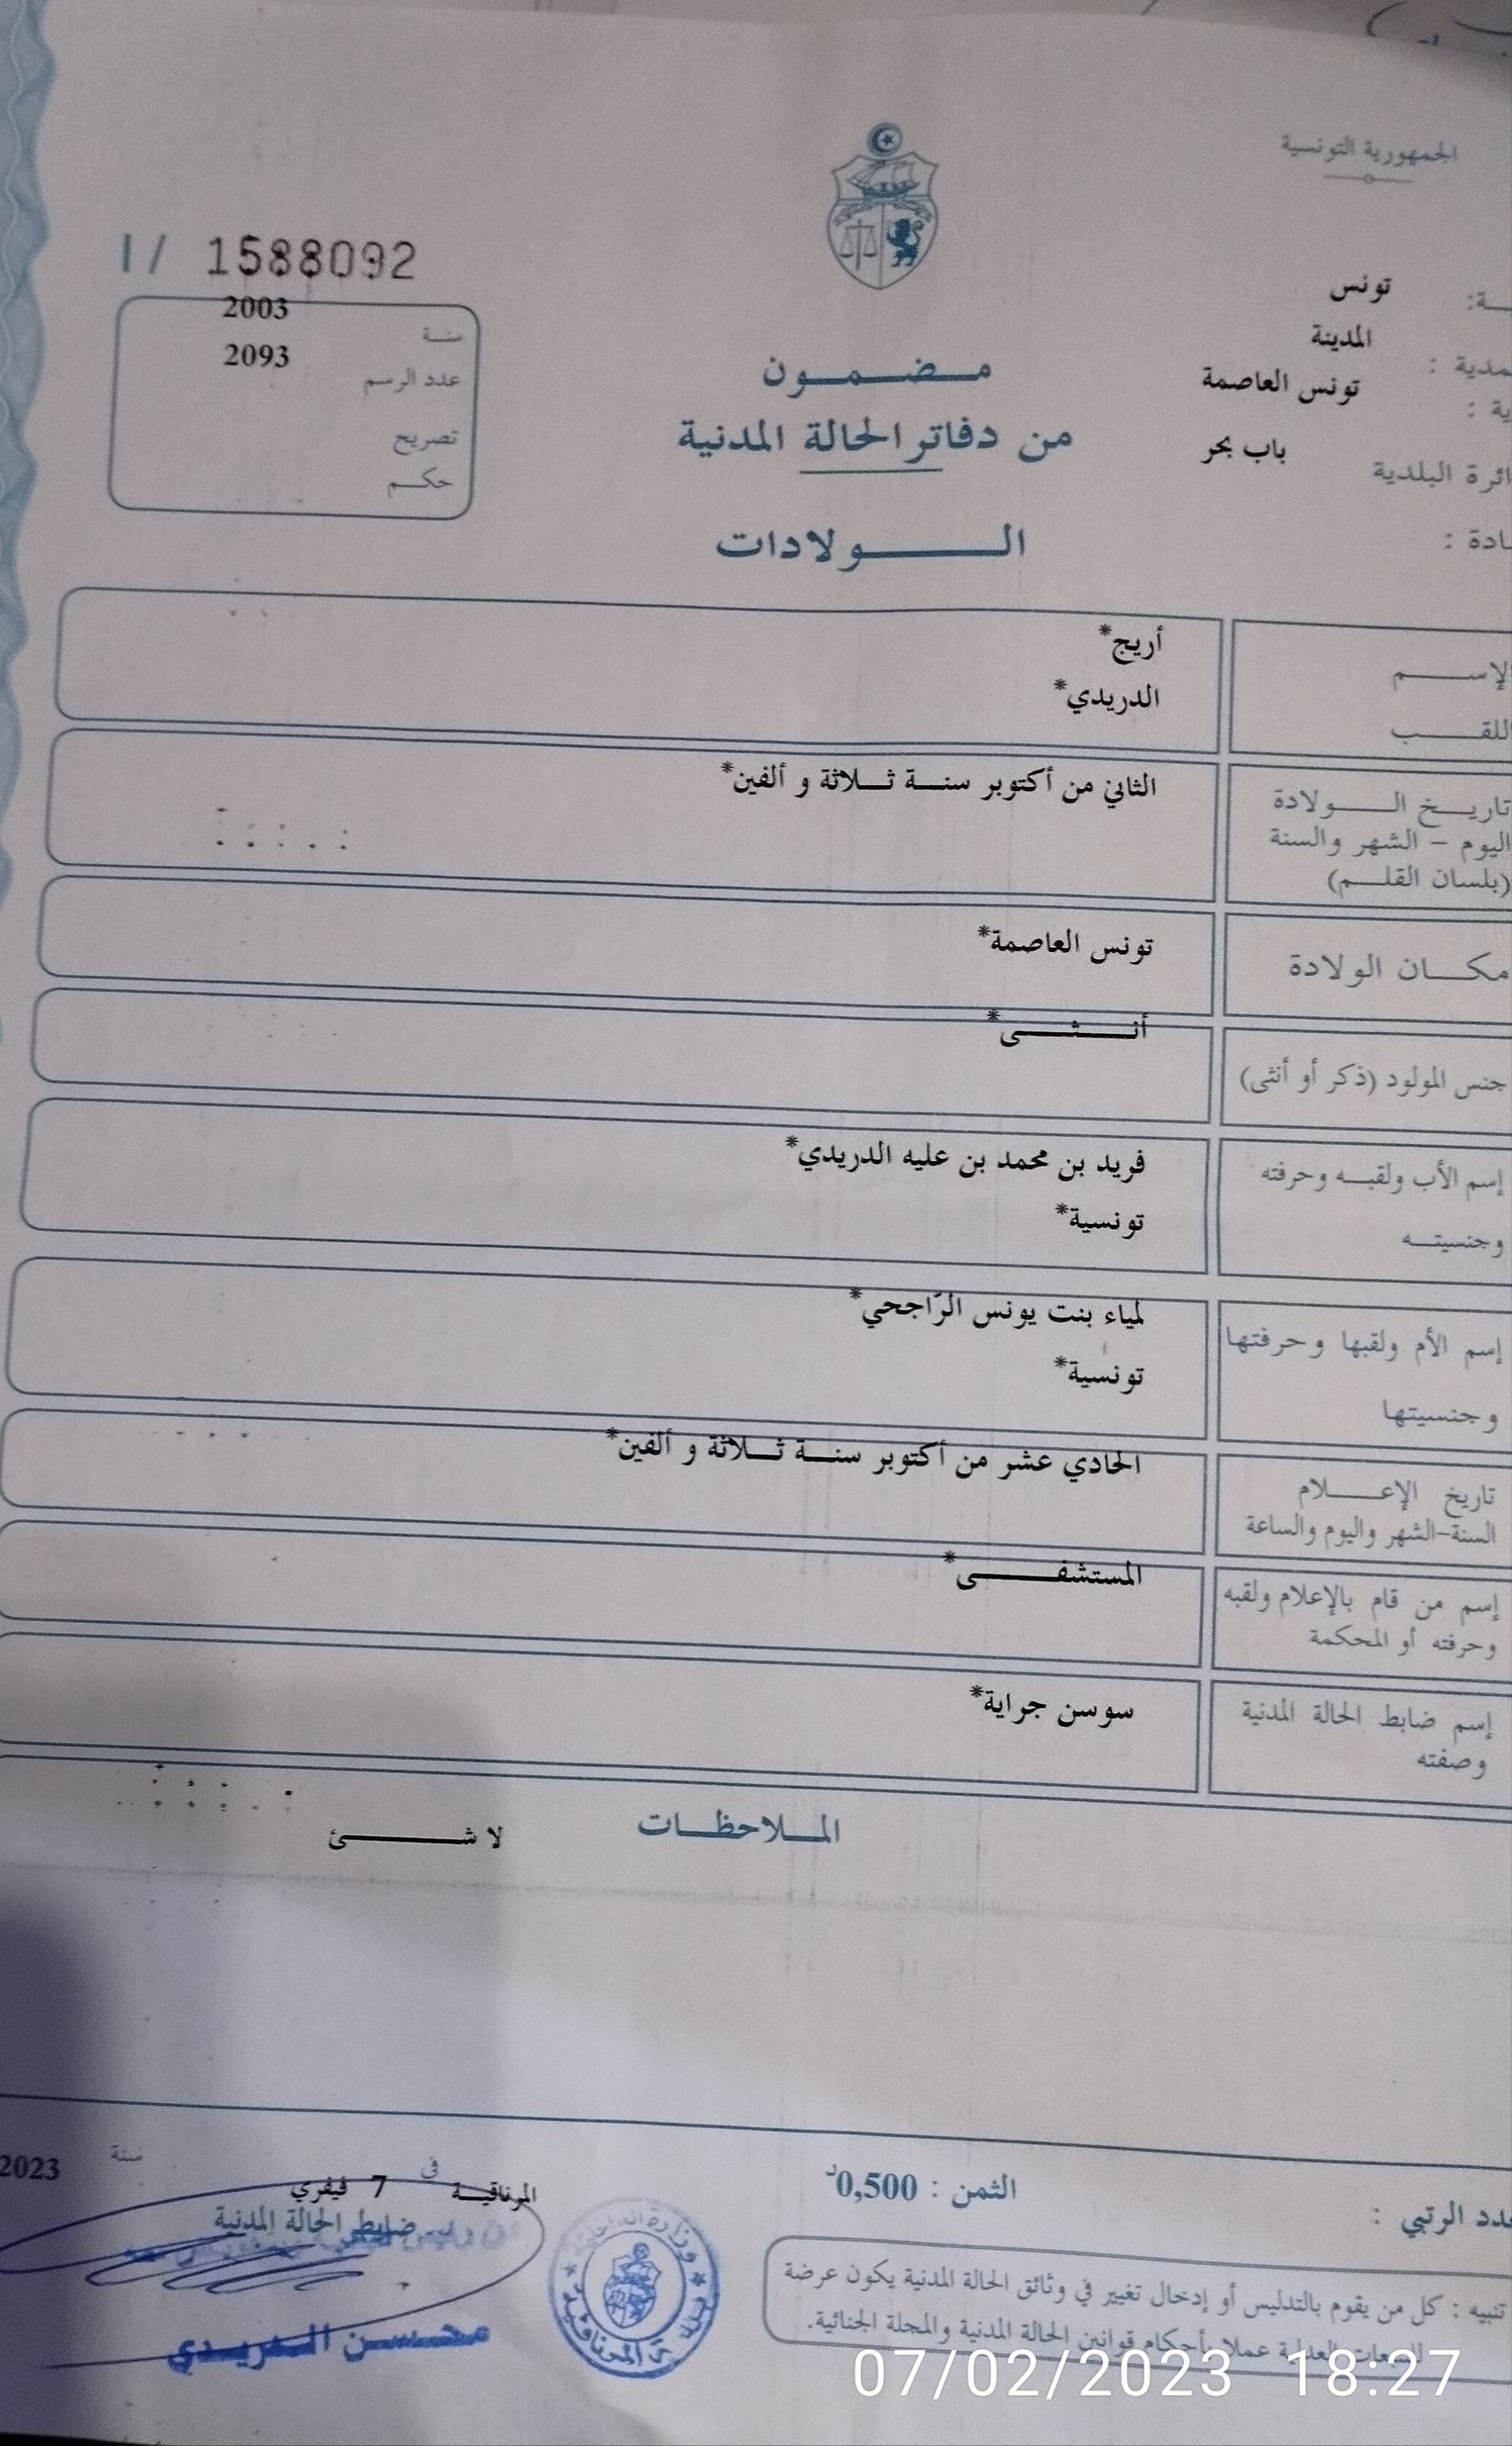 الجمهورية التونسية
1/ 1588092
2003
سنة
2093
عدد الرسم
تصريح
حكم
تونس
المدينة
تونس العاصمة
باب بحر
البلدية
مضمون
من دفاتر الحالة المدنية
الولادات
الإسم
أريج*
اللقب
الدريدي*
تاريخ الولادة
اليوم – الشهر والسنة
(بلسان القلم)
الثاني من أكتوبر سنة ثلاثة و ألفين*
مكان الولادة
تونس العاصمة*
جنس المولود (ذكر أو أنثى)
أنثى*
إسم الأب ولقبه وحرفته
وجنسيته
فريد بن محمد بن عليه الدريدي*
تونسية*
إسم الأم ولقبها وحرفتها
وجنسيتها
لمياء بنت يونس الرّاجحي*
تونسية*
تاريخ الإعلام
السنة-الشهر واليوم والساعة
الحادي عشر من أكتوبر سنة ثلاثة و ألفين*
إسم من قام بالإعلام ولقبه
وحرفته أو المحكمة
المستشفى*
إسم ضابط الحالة المدنية
وصفته
سوسن جراية*
الملاحظات
لا شئ
الرتبي :
الثمن : 0,500د
المرناقية في 7 فيفري سنة 2023
ضابط الحالة المدنية
محسن
تنبيه : كل من يقوم بالتدليس أو إدخال تغيير في وثائق الحالة المدنية يكون عرضة
للتبعات العدلية عملا بأحكام قوانين الحالة المدنية والمجلة الجنائية.
07/02/2023 18:27